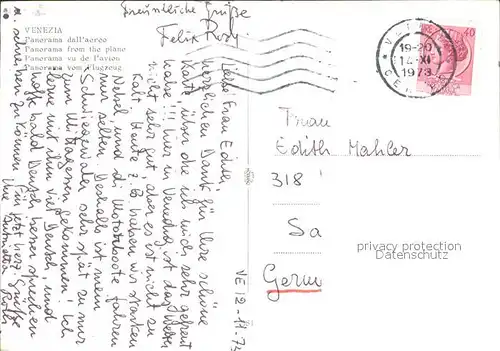 VENEZIA
Panorama dall'aereo
Panorama from the plane
Panorama vu de l'avion
Panorama vom Flugzeug
VE 12-11-73
Liebe Frau Edith,
herzlichen Dank für Ihre schöne
Karte über die ich mich sehr gefreut
habe!!! hier in Venedig ist das Wetter
nicht sehr gut, aber es ist nicht zu
kalt. Heute z.B. haben wir starken
Nebel und die Motorboote fahren
nur selten. Deshalb ist mein
Schwiegervater sehr spät zu mir
zum Mittagessen gekommen! Ich
lerne mit ihm viel Deutsch, und
hoffe bald Deutsch besser sprechen
u. schreiben zu können. Für jetzt herzl. Grüße
Ihre Antonietta
Freundliche Grüße
Felix
19-20
12-XI
1973
40
Frau
Edith Mahler
318
Sa
Germ
privacy protection
Datenschutz